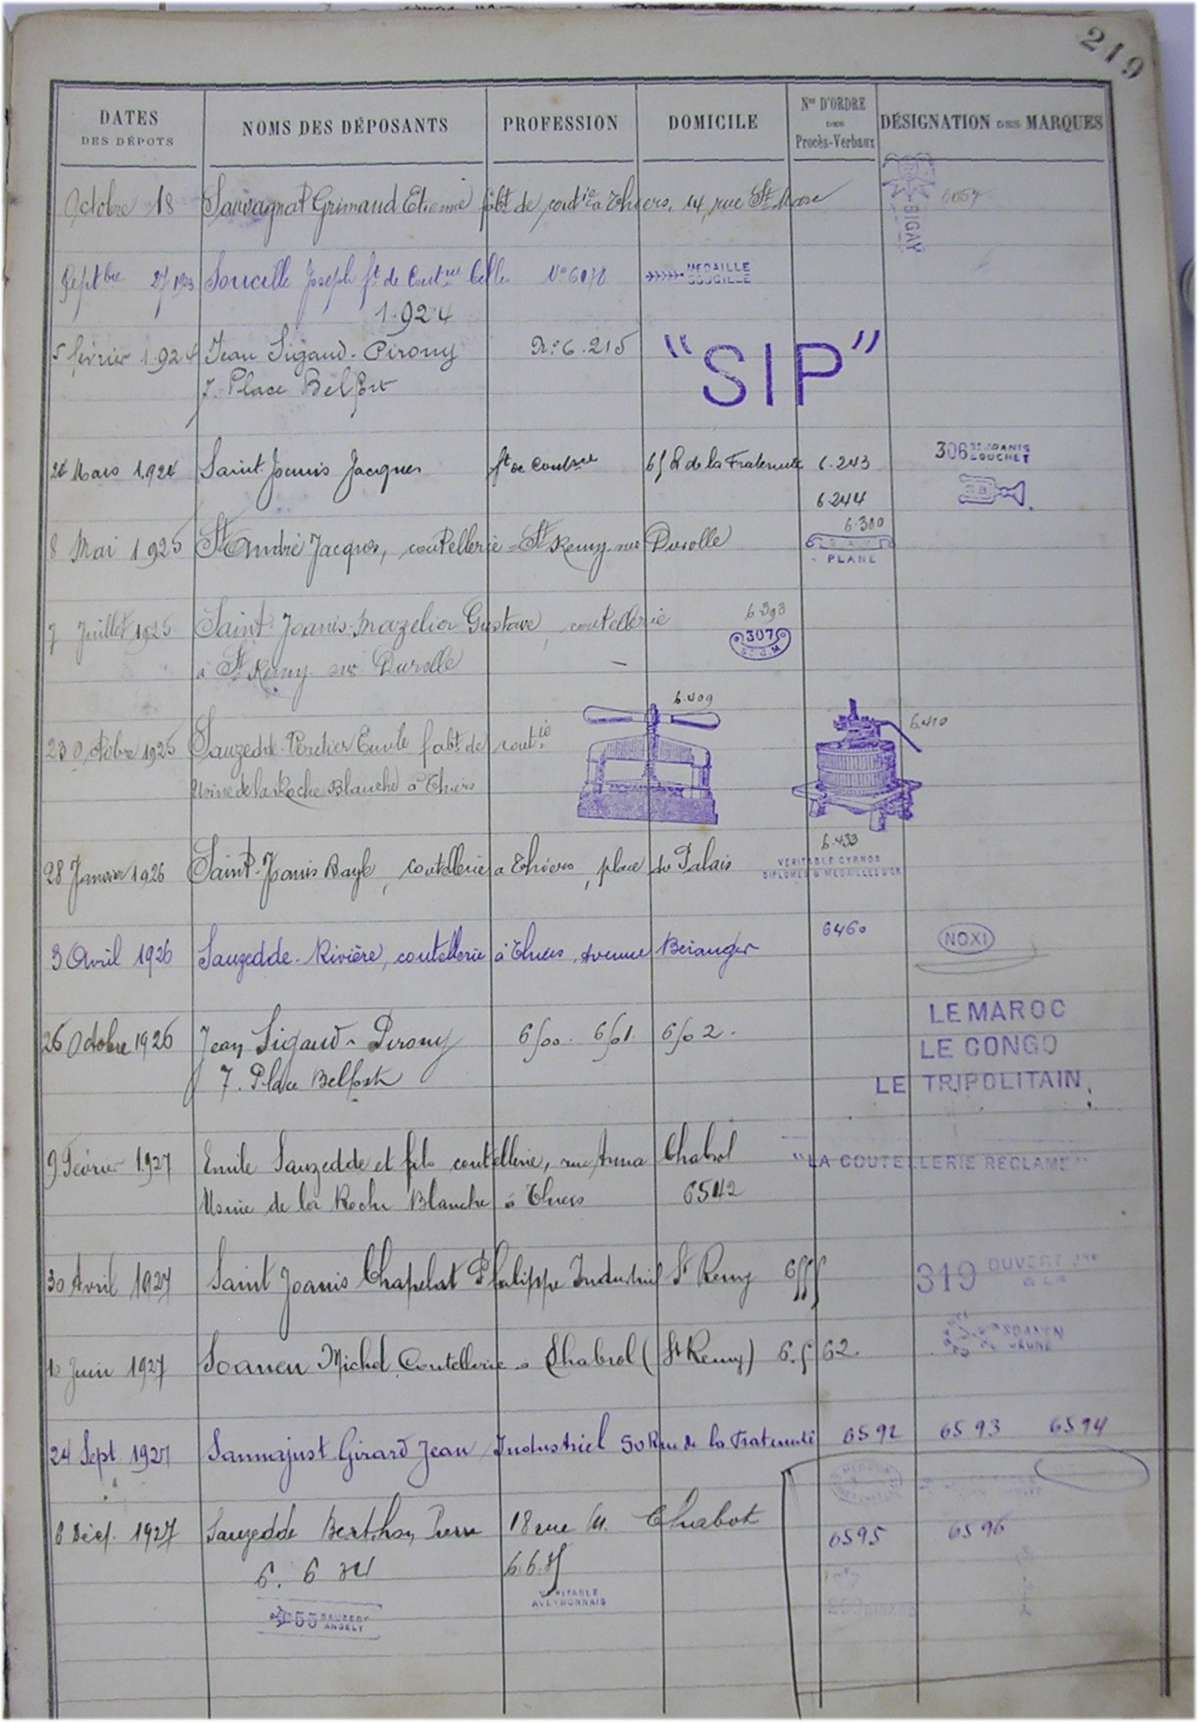 219
DATES DES DÉPOTS
NOMS DES DÉPOSANTS
PROFESSION
DOMICILE
Nos D'ORDRE DES Procès-Verbaux
DÉSIGNATION DES MARQUES
Octobre 18 Sauvagnat Grimaud Etienne fabt de coutie à Thiers, 14, rue St 6057
BIGAY
Septbre 27 1923 Soucille Joseph ft de Cout Celles No 6178 MEDAILLE
SOUCILLE
1.924
5 février 1.924 Jean Sigaud-Pirony No 6.215 "SIP"
7. Place Belfort
24 Mars 1.924 Saint-Joanis Jacques ft de Cout 65 R de la Fraternité 6.243 306
LOUCHET
6.244
8 Mai 1925 St André Jacques, coutellerie St Remy sur Durolle 6.380
PLANE
7 Juillet 1925 Saint-Joanis-Mazelier Gustave, coutellerie 6.393
307
à St Remy sur Durolle
6.409
6.410
23 Octobre 1925 Sauzedde-Peretier Emile fabt de coutie
Usine de la Roche Blanche à Thiers
6.433
28 Janvier 1926 Saint-Joanis Bayle, coutellerie à Thiers, place du Palais VERITABLE CYRNOS
DIPLOMES & MEDAILLES D'OR
3 Avril 1926 Sauzedde-Rivière, coutellerie à Thiers, Avenue Béranger 6460 NOXI
26 Octobre 1926 Jean Sigaud-Pirony 6500. 6501. 6502. LE MAROC
LE CONGO
7. Place Belfort LE TRIPOLITAIN
9 Février 1927 Emile Sauzedde et fils coutellerie, rue Anna Chabrol "LA COUTELLERIE RECLAME"
Usine de la Roche Blanche à Thiers 6542
30 Avril 1927 Saint Joanis Chapelat Philippe Industriel St Remy 6555 319 OUVERT
Juin 1927 Soanen Michel Coutellerie à Chabrol (St Remy) 6.562. SOANEN
JAUNE
24 Sept 1927 Sannajust Girard Jean Industriel 50 Rue de la Fraternité 6592 6593 6594
8 Déc. 1927 Sauzedde Berthon Pierre 18 rue M. Chabot 6595 6596
6.634 6.635
VERITABLE
AVEYRONNAIS
55 SAUZEDDE
ANGELY